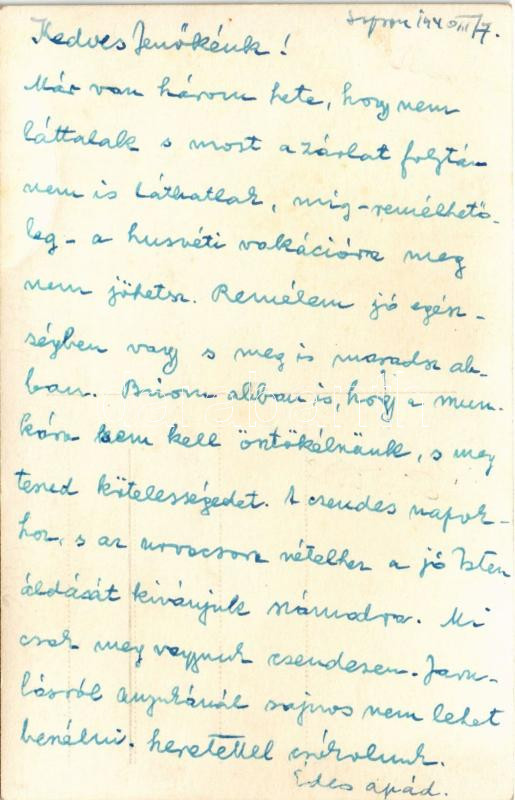 Sopron 1940 III/7.
Kedves Jenőkénk!
Már van három hete, hogy nem
láttalak s most a zárlat folytán
nem is láthatlak, míg-remélhető-
leg- a husvéti vakációra meg
nem jöhetsz. Remélem jó egész-
ségben vagy s meg is maradsz ab-
ban. Bizom abban is, hogy a mun-
kára nem kell ösztökélnünk, s meg
teszed kötelességedet. A csendes napok-
hoz, s az urvacsora vételhez a jó Isten
áldását kivánjuk számodra. Mi
csak meg vagyunk csendesen. Javu-
lásról anyukánál sajnos nem lehet
beszélni. Szeretettel csókolunk.
Édes apád.